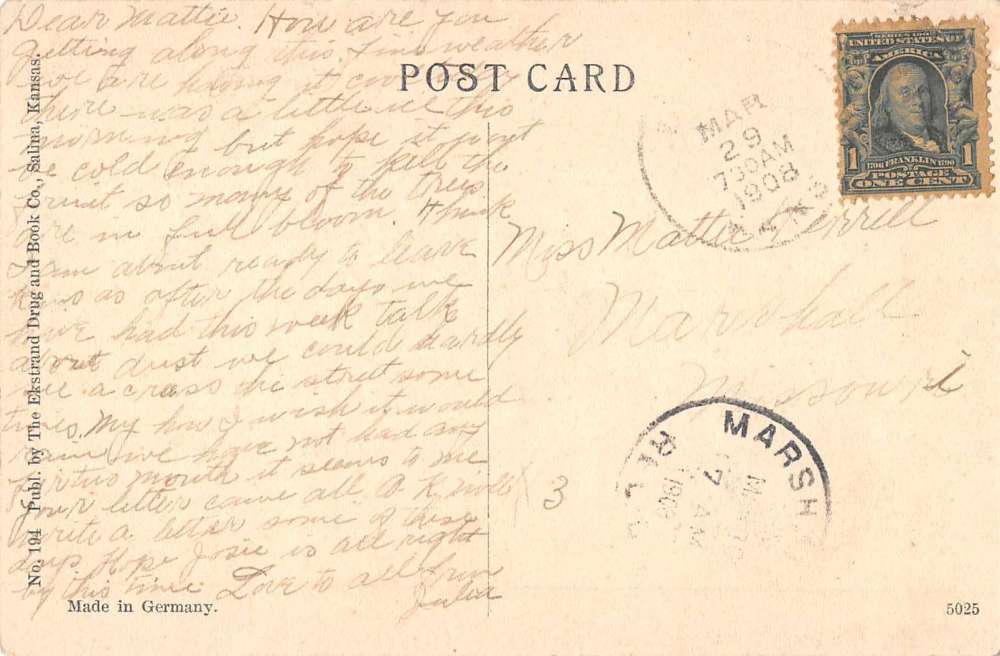 Dear Mattie. How are you
getting along this fine weather
we are having it cool
there was a little ice this
morning but hope it wont
be cold enough to kill the
fruit so many of the trees
are in full bloom. I think
I am about ready to leave
Kas as after the days we
have had this week talk
about dust we could hardly
see across the street some
times. My how I wish it would
rain we have not had any
for two month it seems to me
Your letter came all O.K. will
write a better some of these
days Hope Josie is all right
by this time Love to all from
Julia
No. 194 Publ. by The Ekstrand Drug and Book Co., Salina, Kansas.
Made in Germany.
POST CARD
MAR
29
730AM
1908
KANS
SERIES 1902
UNITED STATES OF
AMERICA
1706 FRANKLIN 1790
1 POSTAGE 1
ONE CENT
Miss Mattie
Marshall
Missouri
MARSH
7 AM
1908
3
5025